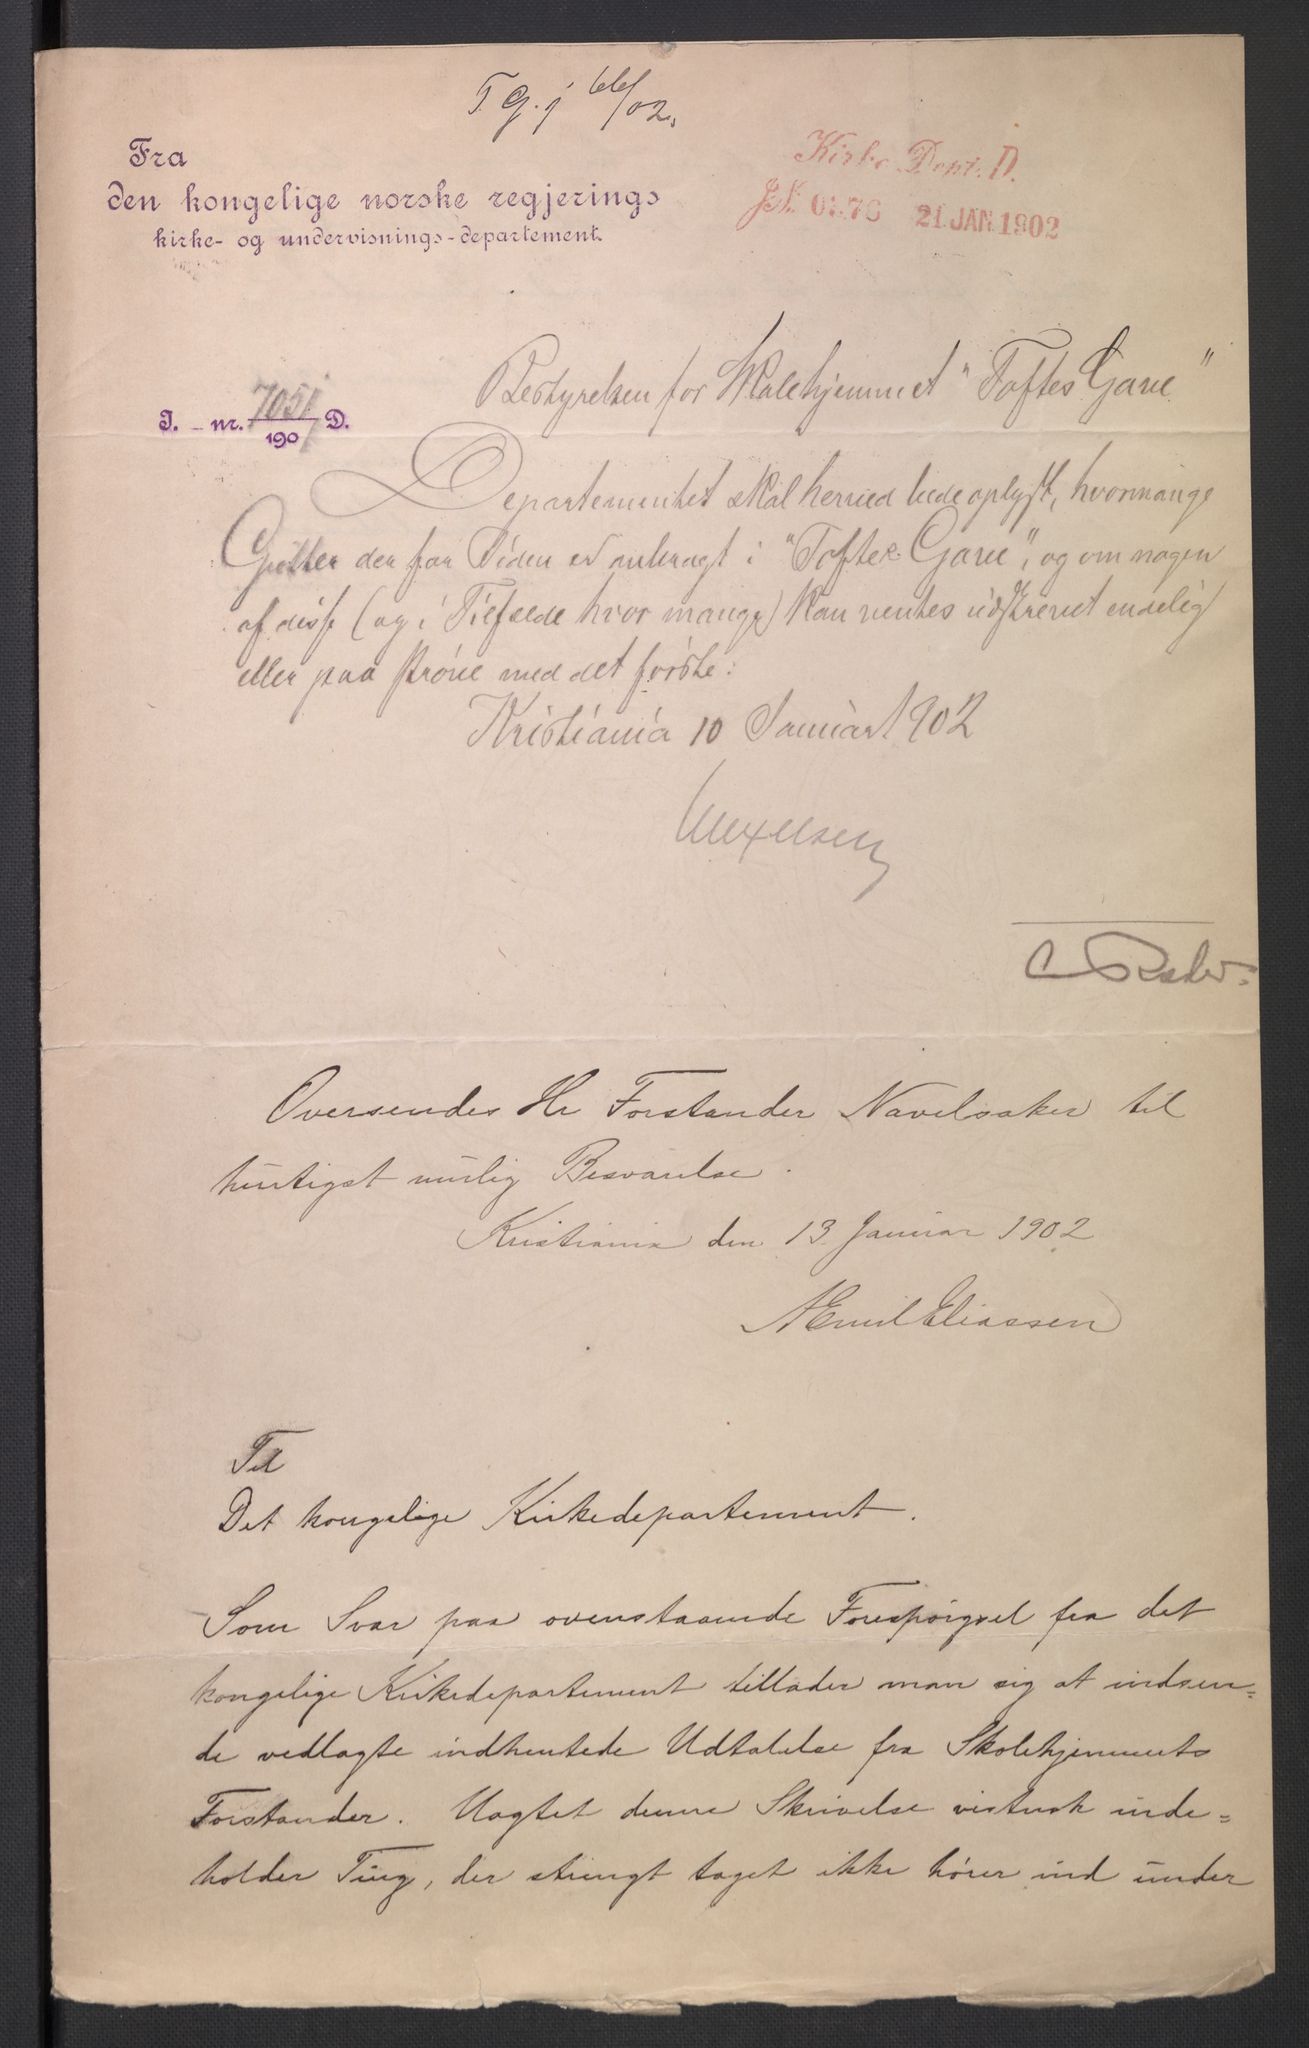 T. G. j 66/02.
Kirke Dept. D.
JN. 0176 21 JAN 1902
Fra
den kongelige norske regjerings
kirke- og undervisnings-departement.
Bestyrelsen for Skolehjemmet "Toftes Gave"
J. - nr. 7051/1901 D.
Departementet skal herved bede oplyst, hvormange
Gutter der for Tiden er anbragt i "Toftes Gave", og om nogen
af disse (og i Tilfælde hvor mange) kan ventes udskrevet endelig
eller paa Prøve med det første.
Kristiania 10 Januar 1902
Wexelsen
Oversendes Hr Forstander Navelsaker til
hurtigst mulig Besvarelse.
Kristiania den 13 Januar 1902
AEmil Eliassen
Til
Det kongelige Kirkedepartement.
Som Svar paa ovenstaaende Forespørgsel fra det
kongelige Kirkedepartement tillader man sig at indsen=
de vedlagte indhentede Udtalelse fra Skolehjemmets
Forstander. Uagtet denne Skrivelse vistnok inde=
holder Ting, der strengt taget ikke hører ind under